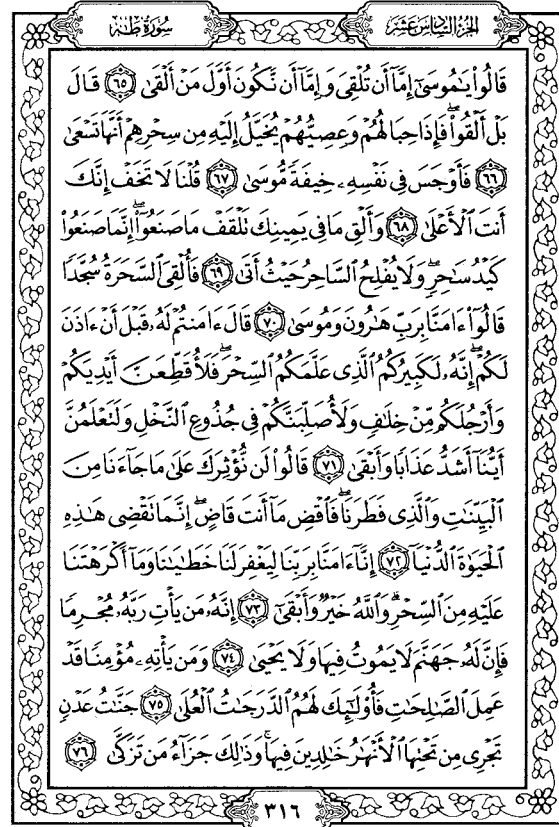 سُورَةُ طه
الجُزءُ السَّادِسَ عَشَرَ
قَالُوا۟ يَـٰمُوسَىٰٓ إِمَّآ أَن تُلْقِىَ وَإِمَّآ أَن نَّكُونَ أَوَّلَ مَنْ أَلْقَىٰ ﴿٦٥﴾ قَالَ
بَلْ أَلْقُوا۟ۖ فَإِذَا حِبَالُهُمْ وَعِصِيُّهُمْ يُخَيَّلُ إِلَيْهِ مِن سِحْرِهِمْ أَنَّهَا تَسْعَىٰ
﴿٦٦﴾ فَأَوْجَسَ فِى نَفْسِهِۦ خِيفَةً مُّوسَىٰ ﴿٦٧﴾ قُلْنَا لَا تَخَفْ إِنَّكَ
أَنتَ ٱلْأَعْلَىٰ ﴿٦٨﴾ وَأَلْقِ مَا فِى يَمِينِكَ تَلْقَفْ مَا صَنَعُوٓا۟ۖ إِنَّمَا صَنَعُوا۟
كَيْدُ سَـٰحِرٍۖ وَلَا يُفْلِحُ ٱلسَّاحِرُ حَيْثُ أَتَىٰ ﴿٦٩﴾ فَأُلْقِىَ ٱلسَّحَرَةُ سُجَّدًا
قَالُوٓا۟ ءَامَنَّا بِرَبِّ هَـٰرُونَ وَمُوسَىٰ ﴿٧٠﴾ قَالَ ءَامَنتُمْ لَهُۥ قَبْلَ أَنْ ءَاذَنَ
لَكُمْۖ إِنَّهُۥ لَكَبِيرُكُمُ ٱلَّذِى عَلَّمَكُمُ ٱلسِّحْرَۖ فَلَأُقَطِّعَنَّ أَيْدِيَكُمْ
وَأَرْجُلَكُم مِّنْ خِلَـٰفٍ وَلَأُصَلِّبَنَّكُمْ فِى جُذُوعِ ٱلنَّخْلِ وَلَتَعْلَمُنَّ
أَيُّنَآ أَشَدُّ عَذَابًا وَأَبْقَىٰ ﴿٧١﴾ قَالُوا۟ لَن نُّؤْثِرَكَ عَلَىٰ مَا جَآءَنَا مِنَ
ٱلْبَيِّنَـٰتِ وَٱلَّذِى فَطَرَنَاۖ فَٱقْضِ مَآ أَنتَ قَاضٍۖ إِنَّمَا تَقْضِى هَـٰذِهِ
ٱلْحَيَوٰةَ ٱلدُّنْيَآ ﴿٧٢﴾ إِنَّآ ءَامَنَّا بِرَبِّنَا لِيَغْفِرَ لَنَا خَطَـٰيَـٰنَا وَمَآ أَكْرَهْتَنَا
عَلَيْهِ مِنَ ٱلسِّحْرِۗ وَٱللَّهُ خَيْرٌ وَأَبْقَىٰٓ ﴿٧٣﴾ إِنَّهُۥ مَن يَأْتِ رَبَّهُۥ مُجْرِمًا
فَإِنَّ لَهُۥ جَهَنَّمَ لَا يَمُوتُ فِيهَا وَلَا يَحْيَىٰ ﴿٧٤﴾ وَمَن يَأْتِهِۦ مُؤْمِنًا قَدْ
عَمِلَ ٱلصَّـٰلِحَـٰتِ فَأُو۟لَـٰٓئِكَ لَهُمُ ٱلدَّرَجَـٰتُ ٱلْعُلَىٰ ﴿٧٥﴾ جَنَّـٰتُ عَدْنٍ
تَجْرِى مِن تَحْتِهَا ٱلْأَنْهَـٰرُ خَـٰلِدِينَ فِيهَاۚ وَذَٰلِكَ جَزَآءُ مَن تَزَكَّىٰ ﴿٧٦﴾
٣١٦